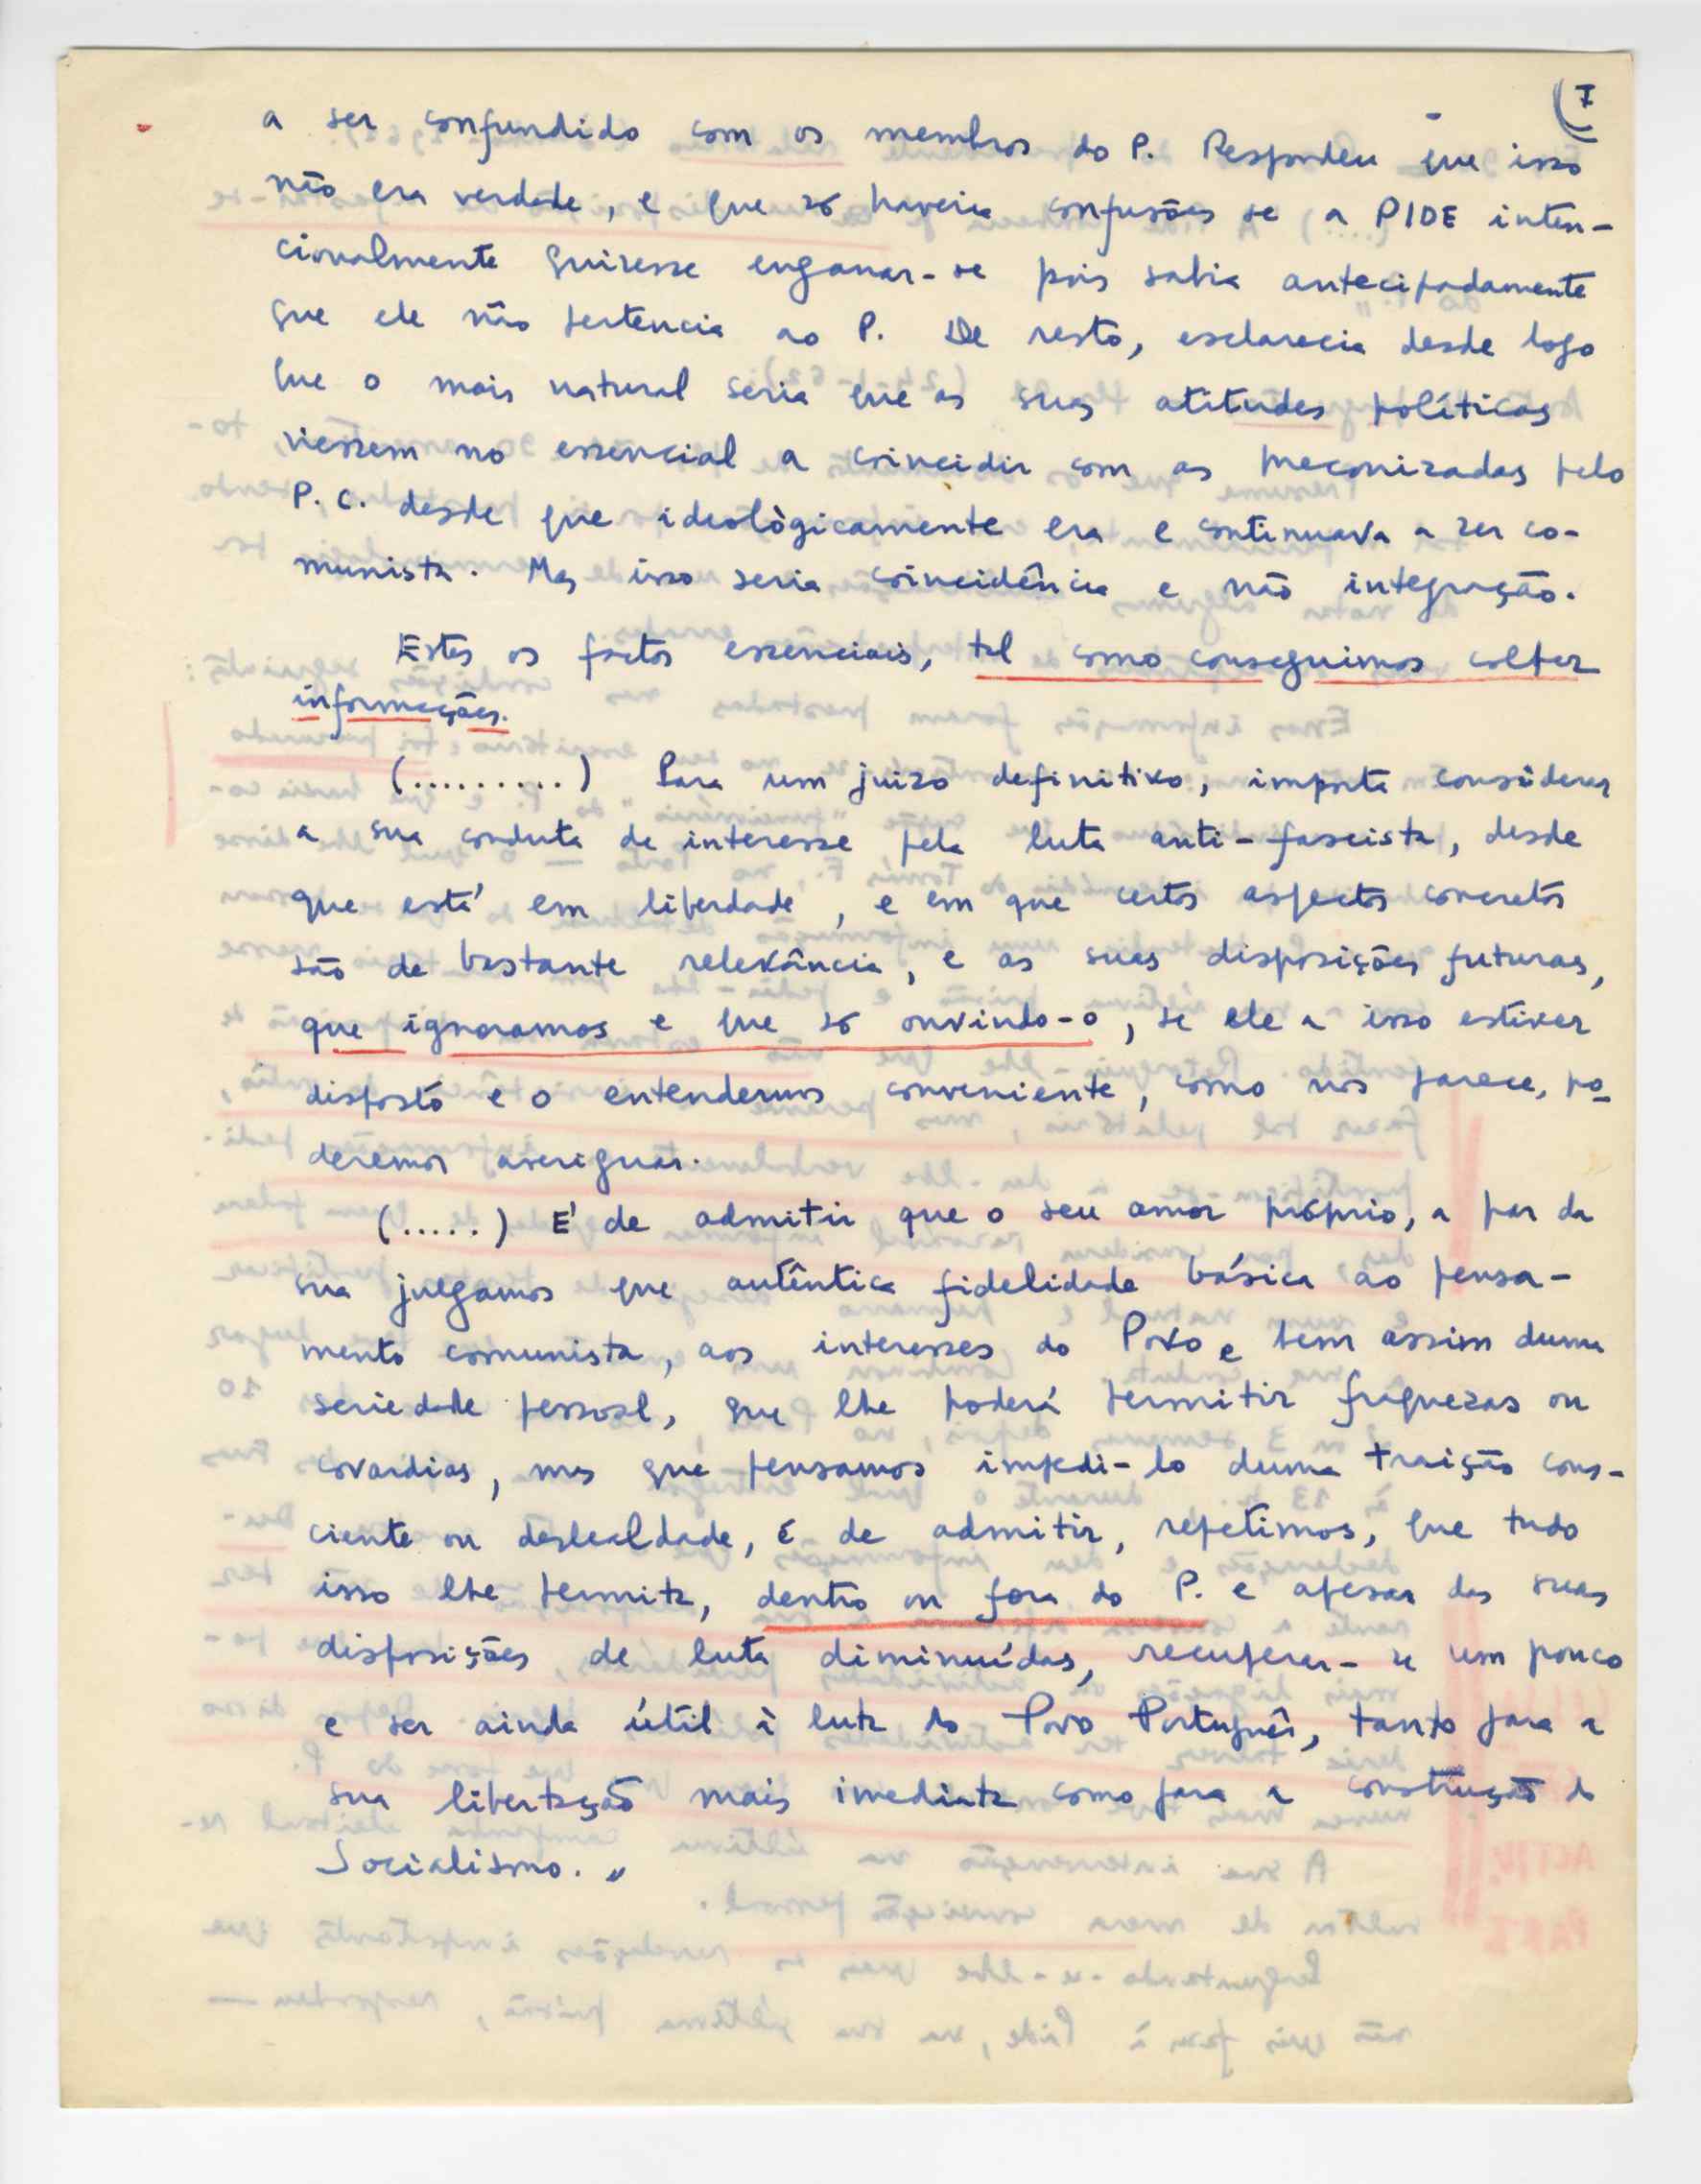 (7
a ser confundido com os membros do P. Respondeu que isso
não era verdade, e que só haveria confusões se a PIDE inten-
cionalmente quizesse enganar-se pois sabia antecipadamente
que ele não pertencia ao P. De resto, esclarecia desde logo
que o mais natural seria que as suas atitudes políticas
viessem no essencial a coincidir com as preconizadas pelo
P. C. desde que ideològicamente era e continuava a ser co-
munista. Mas isso seria coincidência e não integração.
Estes os factos essenciais, tal como conseguimos colher
informações.
(.........) Para um juizo definitivo, importa considerar
a sua conduta de interesse pela luta anti-fascista, desde
que está em liberdade, e em que certos aspectos concretos
são de bastante relevância, e as suas disposições futuras,
que ignoramos e que só ouvindo-o, se ele a isso estiver
disposto e o entendermos conveniente, como nos parece, po-
deremos averiguar.
(.....) É de admitir que o seu amor próprio, a par da
sua julgamos que autêntica fidelidade básica ao pensa-
mento comunista, aos interesses do Povo e bem assim duma
seriedade pessoal, que lhe poderá permitir fraquezas ou
covardias, mas que pensamos impedi-lo duma traição cons-
ciente ou deslealdade, é de admitir, repetimos, que tudo
isso lhe permita, dentro ou fora do P. e apesar das suas
disposições de luta diminuídas, recuperar-se um pouco
e ser ainda útil à luta do Povo Português, tanto para a
sua libertação mais imediata como para a construção do
Socialismo."